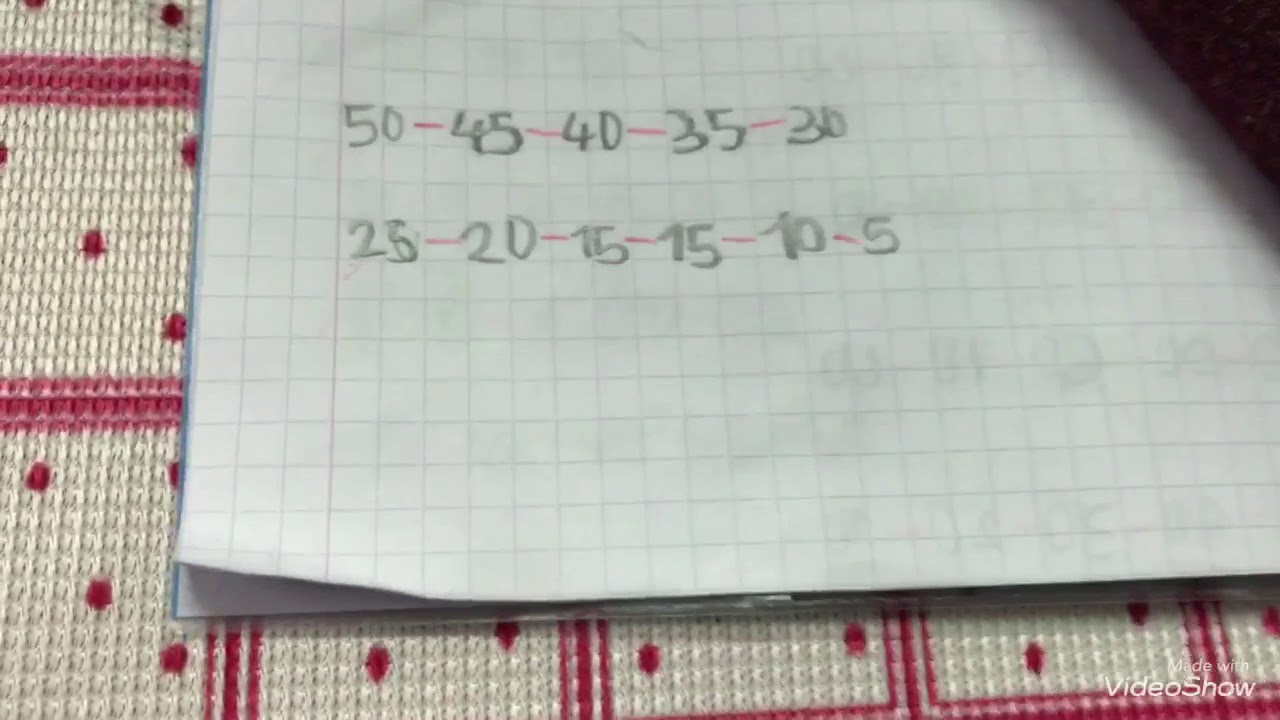 50-45-40-35-30
25-20-15-15-10-5
Made with
VideoShow